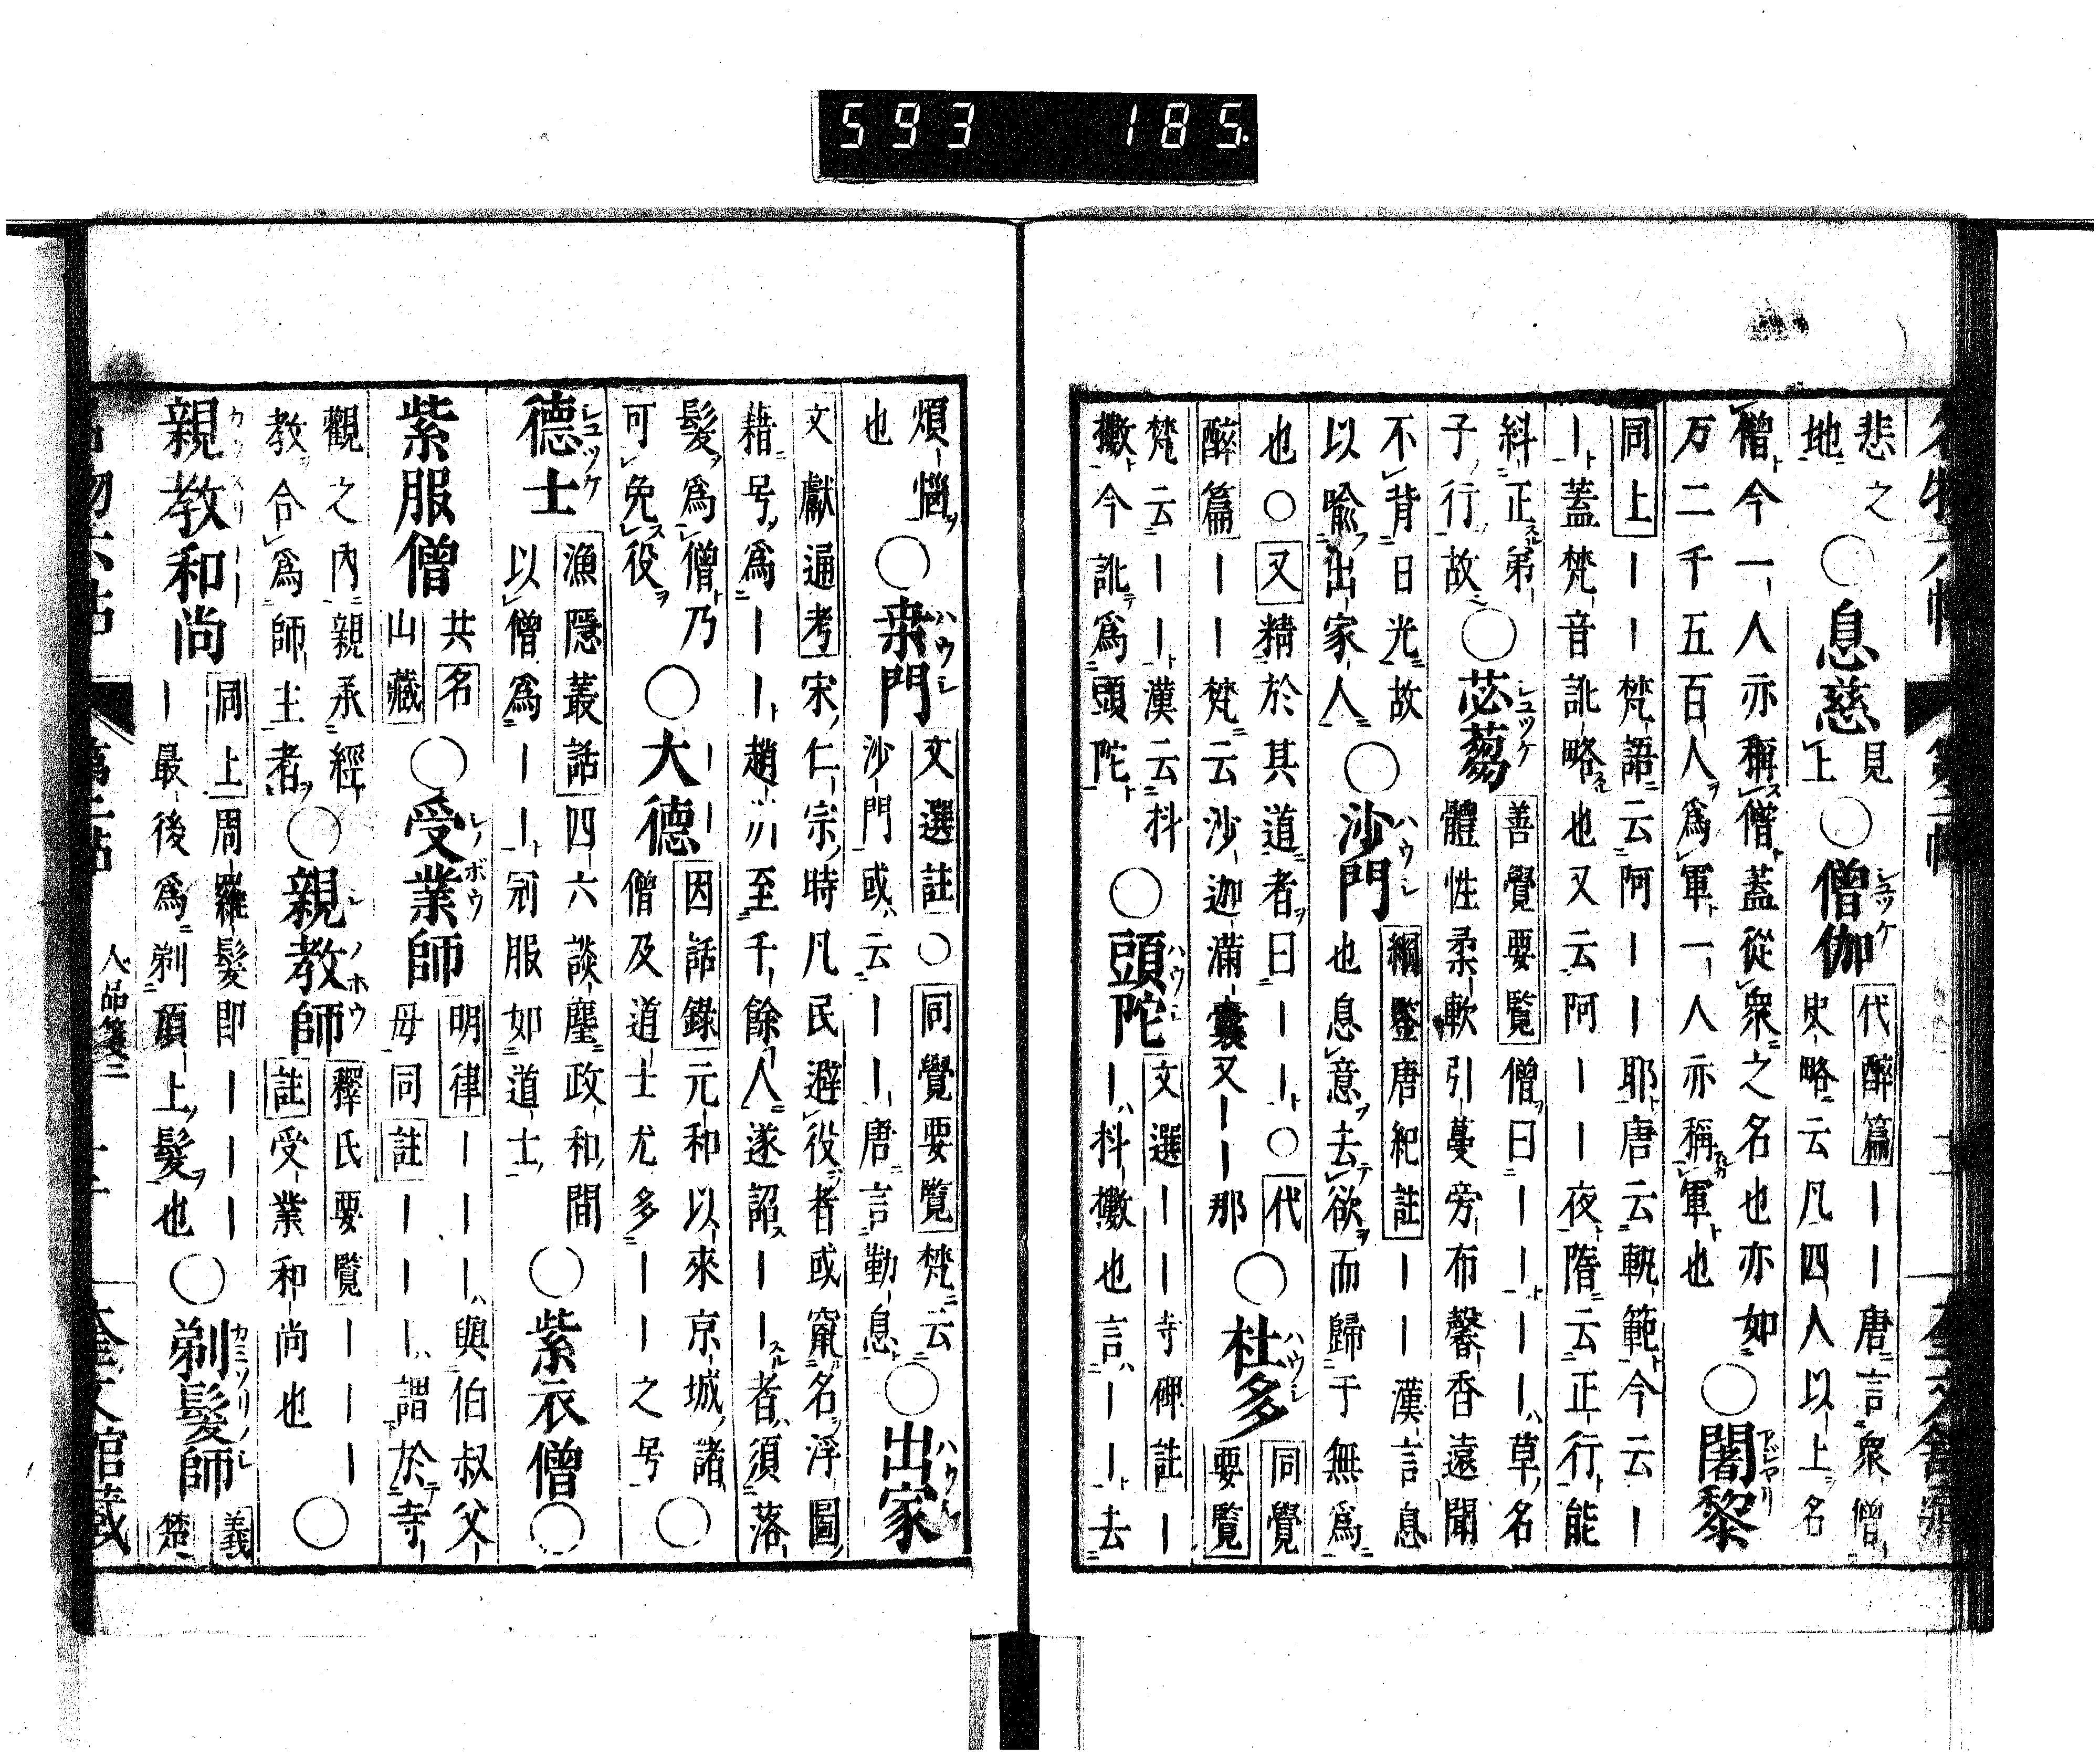 名物六帖　第二帖　奎文舘藏
悲之
地
○息慈
見
上
○僧伽 シユツケ
代醉篇｜｜唐言衆僧
史略云凡四人以上名
僧今一人亦稱僧蓋從衆之名也亦如
万二千五百人爲軍一人亦稱軍也
○闍黎 アジヤリ
同上｜｜梵語云阿｜｜耶唐云軌範今云｜
｜蓋梵音訛略也又云阿｜｜夜隋云正行能
糾正弟
子行故
○苾蒭 シユツケ
善覺要覧僧曰｜｜｜｜草名
體性柔軟引蔓旁布馨香遠聞
不背日光故
以喩出家人
○沙門 ハウシ
綱鑒唐紀註｜｜漢言息
也息意去欲而歸于無爲
也○又精於其道者曰｜｜○代
醉篇｜｜梵云沙迦懣囊又｜｜那
○杜多 ハウシ
同覺
要覧
梵云｜｜漢云抖
擻今訛爲頭陀
○頭陀 ハウシ
文選｜｜寺碑註｜
｜抖擻也言｜｜去
煩惱
也
○桒門 ハウシ
文選註○同覺要覧梵云
沙門或云｜｜唐言勤息
○出家 ハウシ
文獻通考宋仁宗時凡民避役者或竄名浮圖
藉号爲｜｜趙州至千餘人遂詔｜｜者須落
髮爲僧乃
可免役
○大德 ｜｜
因話錄元和以來京城諸
僧及道士尤多｜｜之号
○
德士 シユツケ
漁隱叢話四六談麈政和間
以僧爲｜｜冠服如道士
○紫衣僧○
紫服僧
共名
山藏
○受業師 シノボウ
明律｜｜｜與伯叔父
母同註｜｜｜謂於寺
觀之内親承經
教合爲師主者
○親教師 シノホウ
釋氏要覧｜｜｜
註受業和尚也
○
親教和尚
同上周羅髮即｜｜｜
｜最後爲剃頂上髮也
○剃髮師 カミソリノシ
義
楚
人品箋二　奎文舘藏